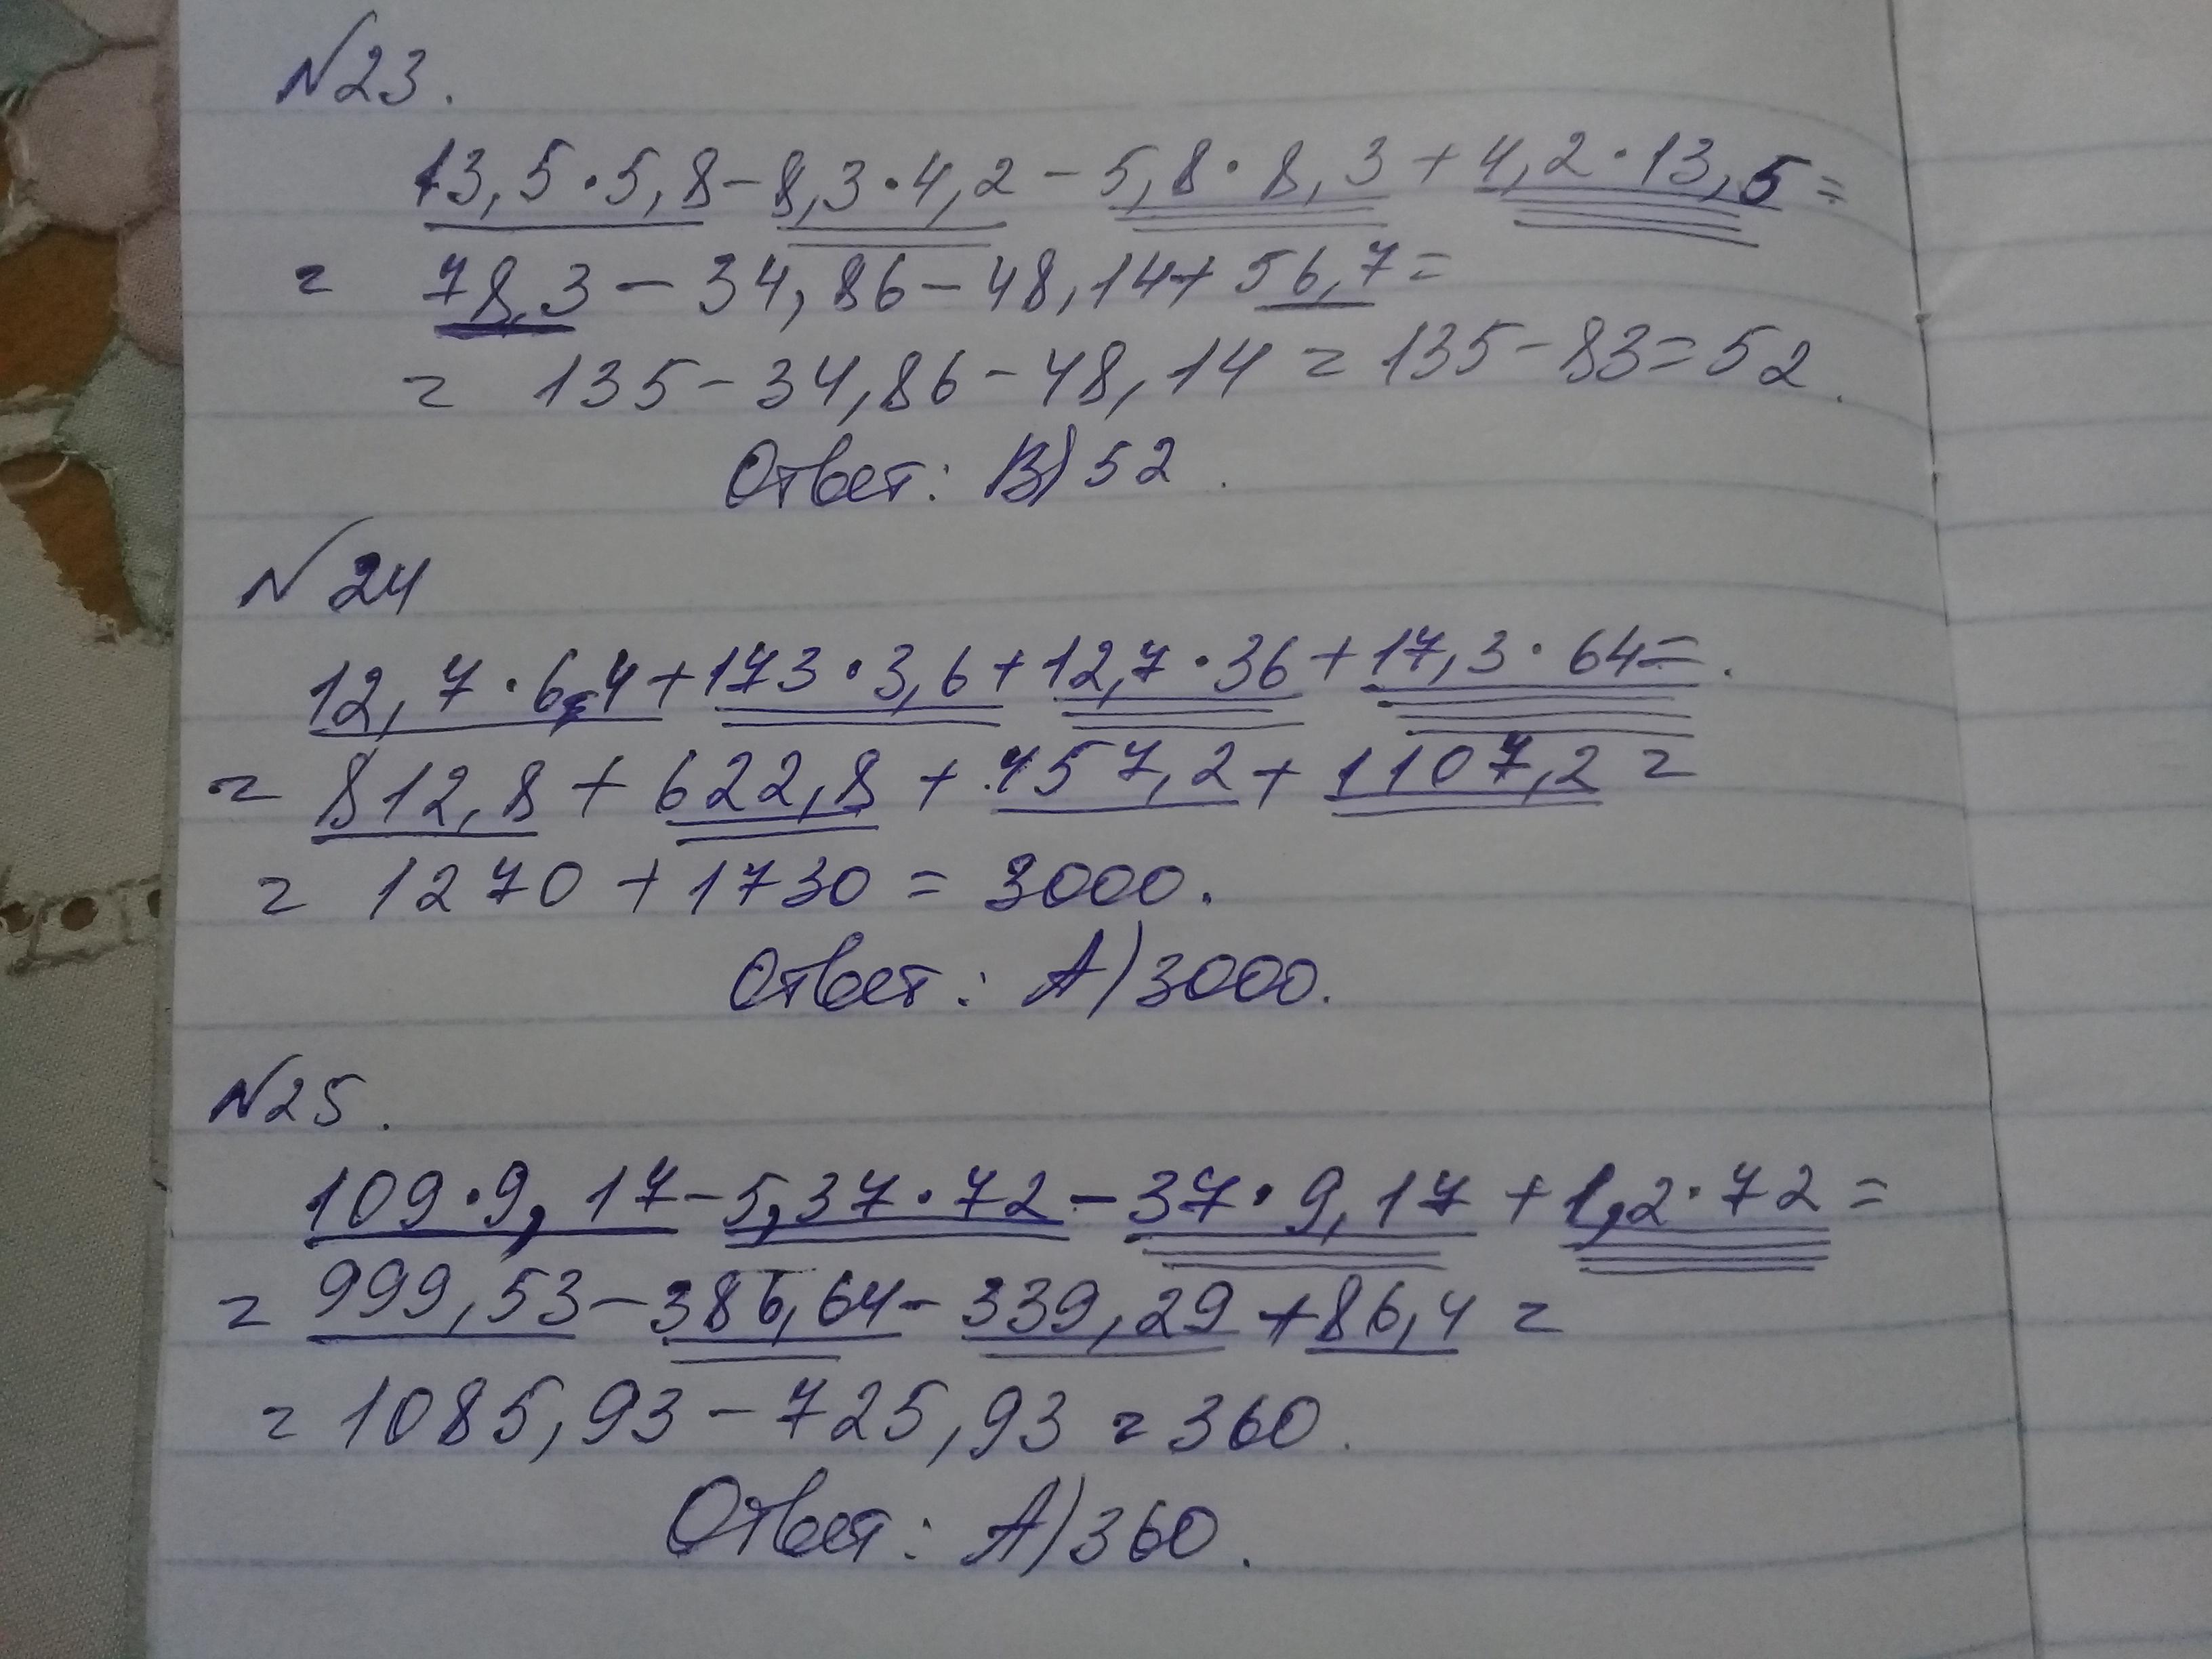 №23.
13,5·5,8-8,3·4,2-5,8·8,3+4,2·13,5=
= 78,3-34,86-48,14+56,7=
= 135-34,86-48,14=135-83=52.
Ответ: В) 52.
№24
12,7·6,4+173·3,6+12,7·36+17,3·64=.
= 812,8+622,8+457,2+1107,2=
= 1270+1730=3000.
Ответ: А) 3000.
№25.
109·9,17-5,37·72-37·9,17+1,2·72=
= 999,53-386,64-339,29+86,4=
= 1085,93-725,93=360.
Ответ: А) 360.